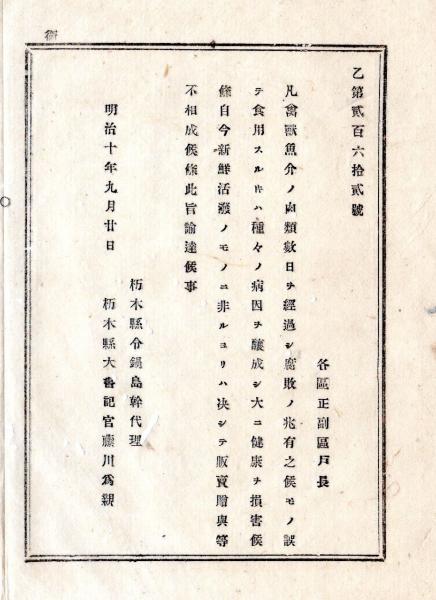 衛
乙第貳百六拾貳號
各區正副區戶長
凡禽獸魚介ノ肉類數日ヲ經過シ腐敗ノ兆有之候モノ誤
テ食用スル時ハ種々ノ病因ヲ釀成シ大ニ健康ヲ損害候
條自今新鮮活潑ノモノニ非ルヨリハ决シテ販賣贈與等
不相成候條此旨諭達候事
明治十年九月廿日
栃木縣令鍋島幹代理
栃木縣大書記官藤川爲親